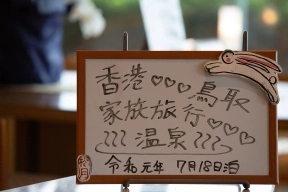 香港♡♡♡鳥取
家族旅行♡♡♡
温泉
令和元年 7月18日泊